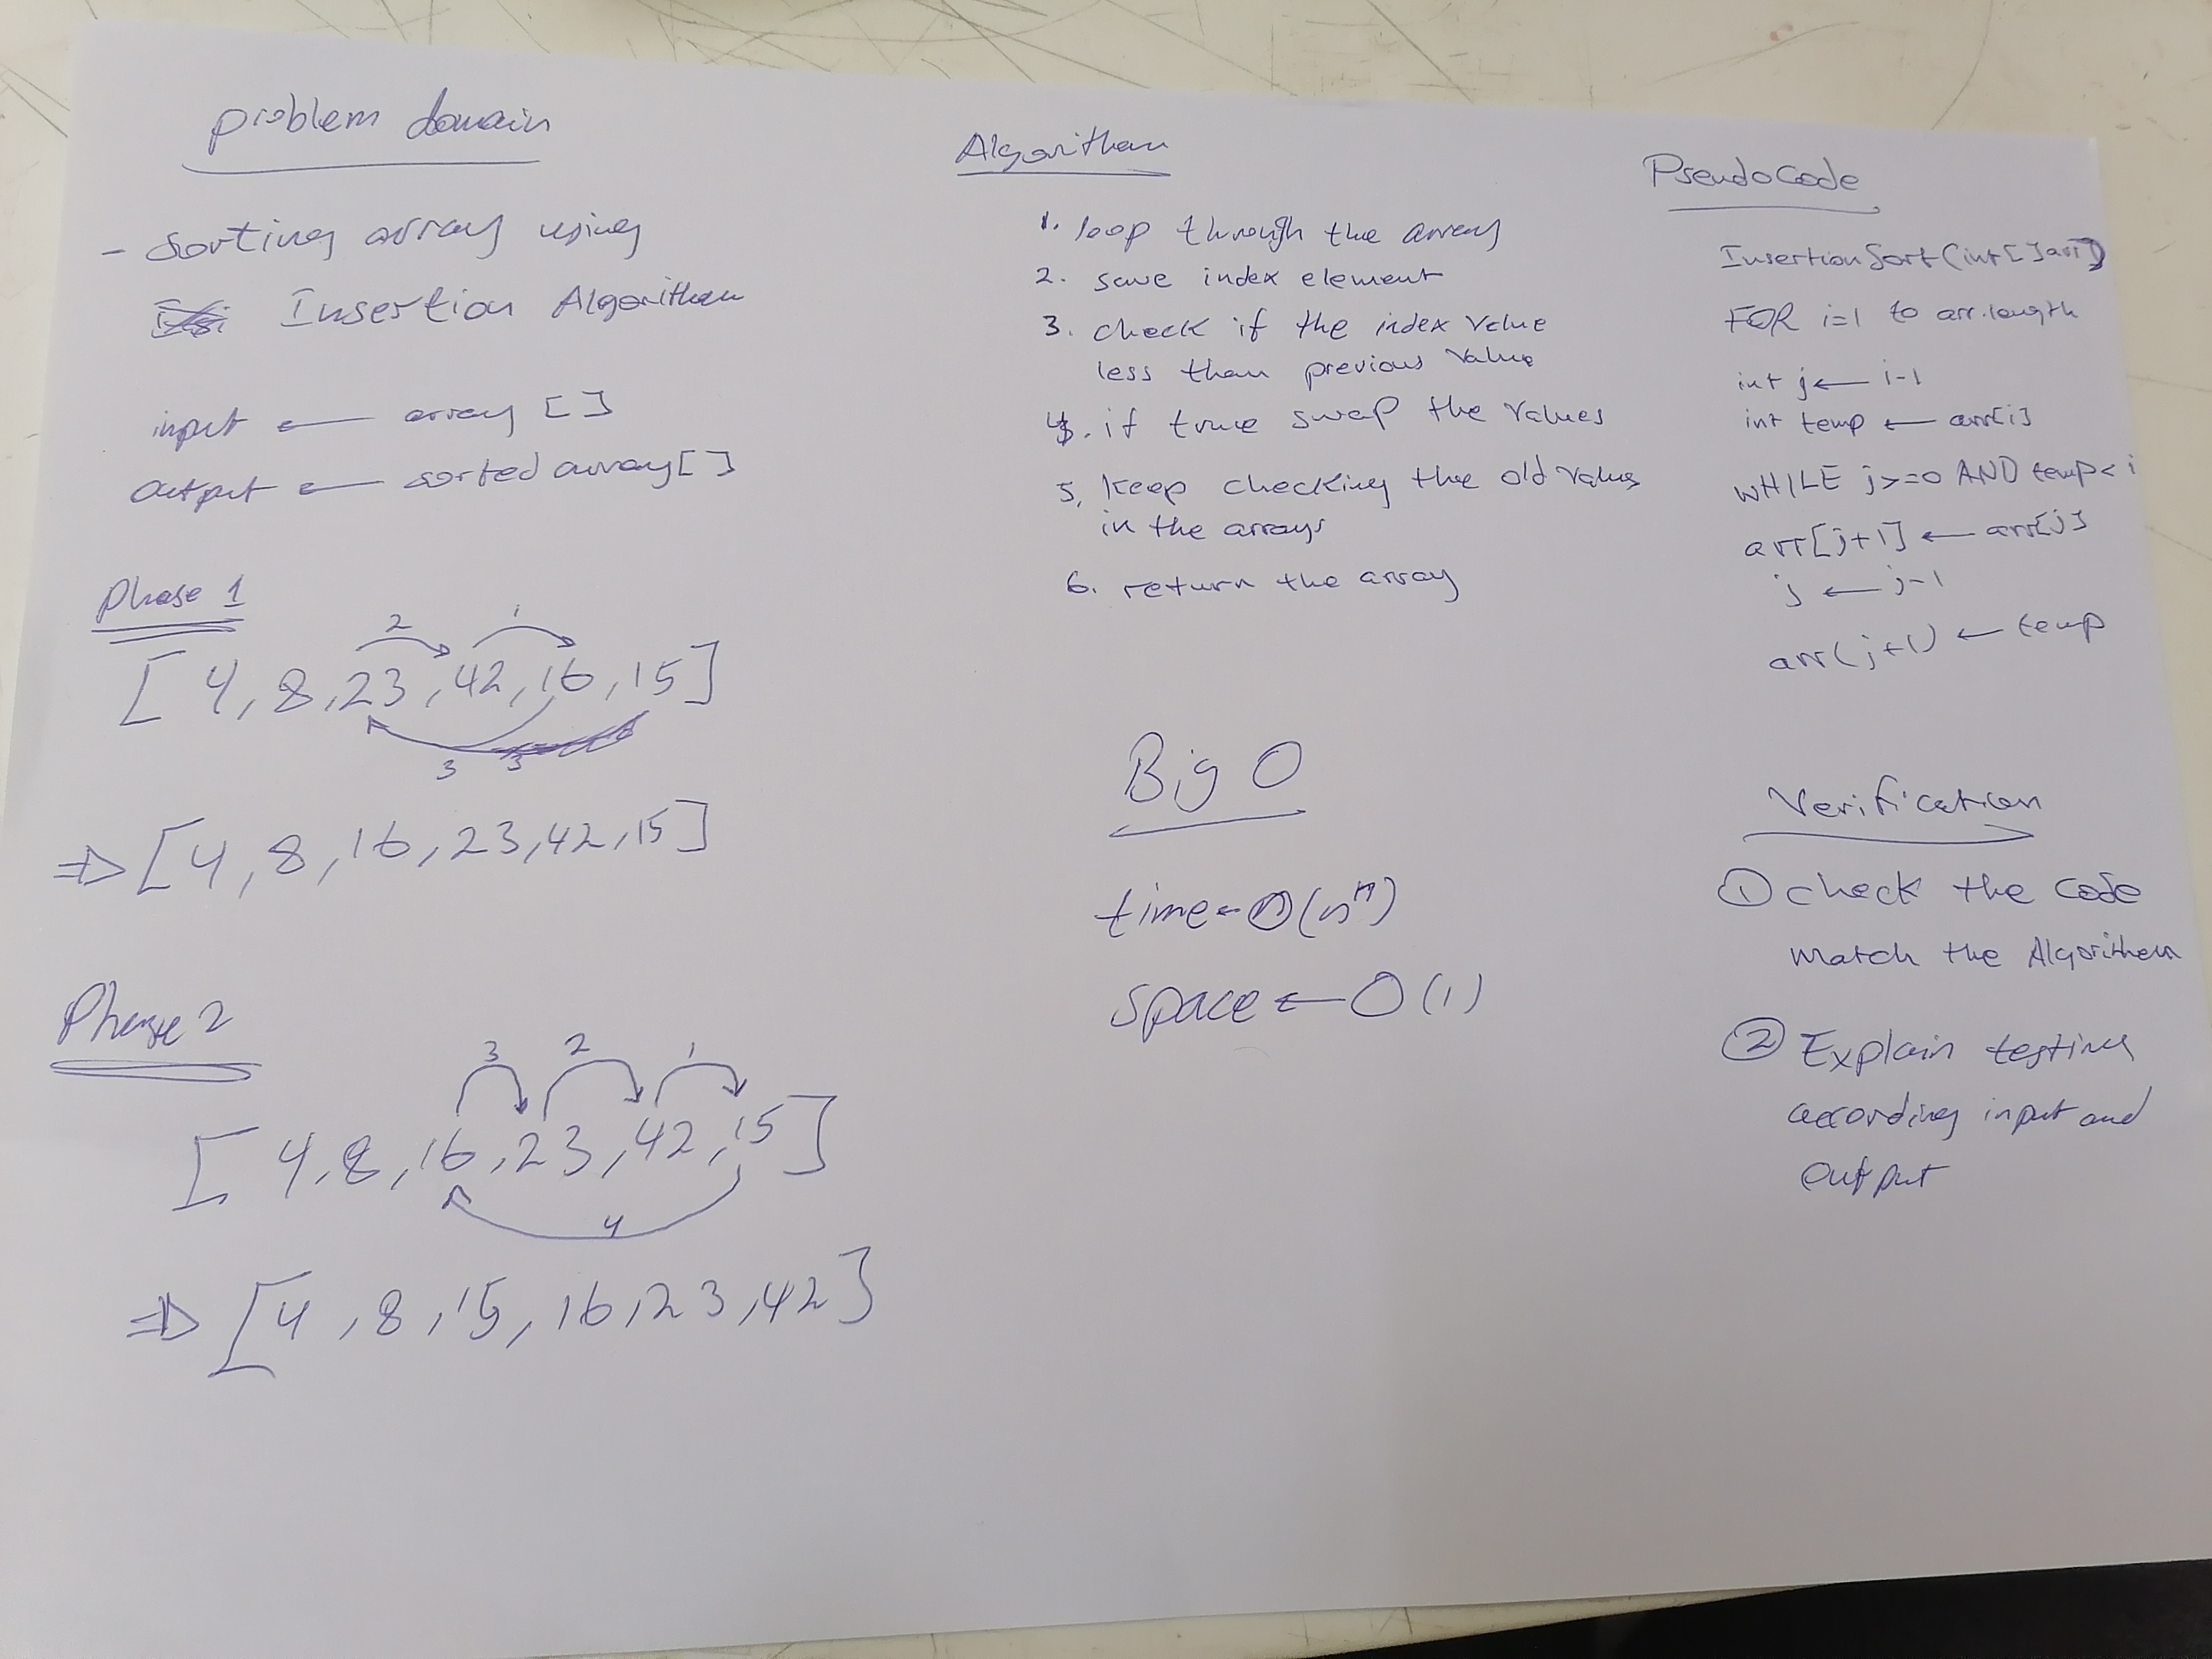 problem domain
- Sorting array using
Insertion Algorithem
input ← array []
output ← sorted array[]
Phase 1
2 1
[4, 8, 23, 42, 16, 15]
3 3
⇒ [4, 8, 16, 23, 42, 15]
Phase 2
3 2 1
[4, 8, 16, 23, 42, 15]
4
⇒ [4, 8, 15, 16, 23, 42]
Algorithem
1. loop through the array
2. save index element
3. check if the index value
less than previous value
4. if true swap the values
5. keep checking the old values
in the arrays
6. return the array
Big O
time ← O(n^n)
space ← O(1)
PseudoCode
InsertionSort(int[]arr)
FOR i=1 to arr.length
int j ← i-1
int temp ← arr[i]
WHILE j>=0 AND temp< i
arr[j+1] ← arr[j]
j ← j-1
arr(j+1) ← temp
Verification
① check the code
match the Algorithem
② Explain testing
according input and
output